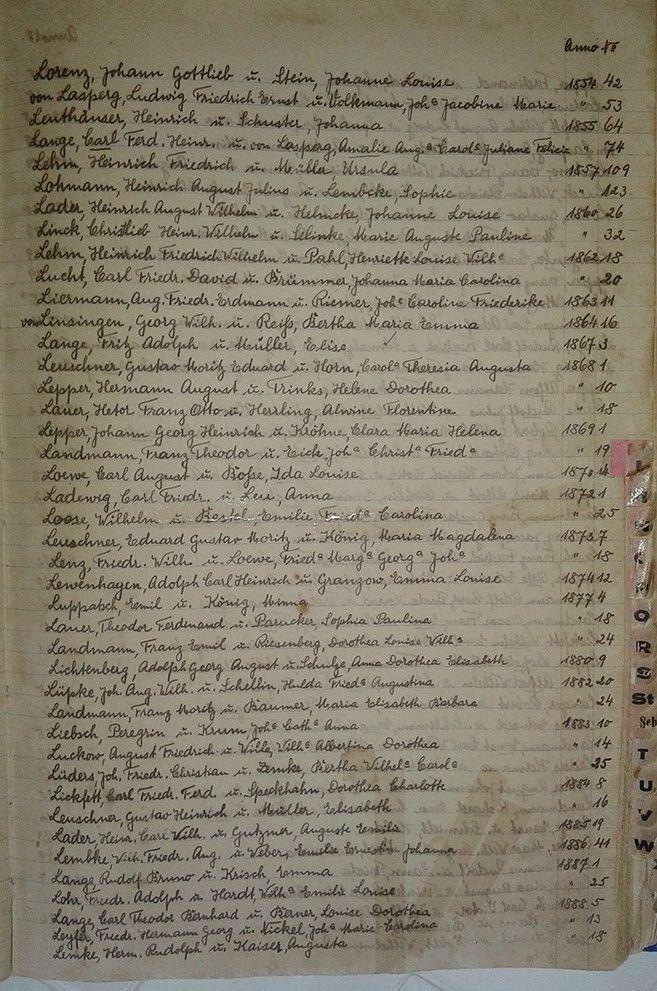 Anno No
Lorenz, Johann Gottlieb u. Stein, Johanne Louise 1854 42
von Lasperg, Ludwig Friedrich Ernst u. Volkmann, Joh.ª Jacobine Marie " 53
Leuthäuser, Heinrich u. Schuster, Johanna 1855 64
Lange, Carl Ferd. Heinr. u. von Lasperg, Amalie Aug.ª Carol.ª Juliane Felicie " 74
Lehm, Heinrich Friedrich u. Müller, Ursula 1857 109
Lohmann, Heinrich August Julius u. Lembcke, Sophie " 123
Lader, Heinrich August Wilhelm u. Helmcke, Johanne Louise 1860 26
Linck, Christlieb Heinr. Wilhelm u. Marie Auguste Pauline " 32
Lehm, Heinrich Friedrich Wilhelm u. Pahl, Henriette Louise Wilh.ª 1862 18
Lucht, Carl Friedr. David u. Brümmer, Johanna Maria Carolina " 20
Liermann, Aug. Friedr. Erdmann u. Riemer, Joh.ª Caroline Friederike 1863 11
von Linsingen, Georg Wilh. u. Reiß, Bertha Maria Emma 1864 16
Lange, Fritz Adolph u. Müller, Elise 1867 3
Leuschner, Gustav Moritz Eduard u. Horn, Carol.ª Theresia Augusta 1868 1
Lepper, Hermann August u. Trinks, Helene Dorothea " 10
Lauer, Hetor Franz Otto u. Herrling, Alwine Florentine " 18
Lepper, Johann Georg Heinrich u. Kröhne, Clara Maria Helena 1869 1
Landmann, Franz Theodor u. Eick, Joh.ª Christ.ª Fried.ª " 19
Loewe, Carl August u. Boße, Ida Louise 1870
Ladewig, Carl Friedr. u. Leu, Anna 1872 1
Loose, Wilhelm u. Bestel, Emilie Fried.ª Carolina " 25
Leuschner, Eduard Gustav Moritz u. König, Maria Magdalena 1873 7
Lenz, Friedr. Wilh. u. Loewe, Fried.ª Marg.ª Georg.ª Joh.ª " 18
Lewenhagen, Adolph Carl Heinrich u. Granzow, Emma Louise 1874 12
Luppatsch, Emil u. König, Minna 1877 4
Lauer, Theodor Ferdinand u. Parucker, Sophia Paulina " 18
Landmann, Franz Emil u. Riesenberg, Dorothea Louise Wilh.ª " 24
Lichtenberg, Adolph Georg August u. Schulze, Anna Dorothea Elisabeth 1880 9
Lüpke, Joh. Aug. Wilh. u. Schellin, Hulda Fried.ª Augustina 1882 20
Landmann, Franz Moritz u. Baumer, Maria Elisabeth Barbara " 24
Liebsch, Peregrin u. Krum, Joh.ª Cath.ª Anna 1883 10
Luckow, August Friedrich u. Wille, Wilh.ª Albertina Dorothea " 14
Lüders, Joh. Friedr. Christian u. Zemke, Bertha Wilhel.ª Carol.ª " 25
Lickfett, Carl Friedr. Ferd. u. Speckhahn, Dorothea Charlotte 1884 8
Leuschner, Gustav Heinrich u. Müller, Elisabeth " 16
Lader, Heinr. Carl Wilh. u. Gutzner, Auguste Emilie 1885 19
Lembke, Wilh. Friedr. Aug. u. Weber, Emilie Ernestine Johanna 1886 41
Lange, Rudolf Bruno u. Krisch, Emma 1887 1
Lohr, Friedr. Adolph u. Hardt, Wilh.ª Emilie Louise " 25
Lange, Carl Theodor Bernhard u. Berner, Louise Dorothea 1888 5
Leyser, Friedr. Hermann Georg u. Nickel, Joh.ª Marie Carolina " 13
Lemke, Herm. Rudolph u. Kaiser, Augusta " 18
O
R
S
St
Sch
T
U
V
W